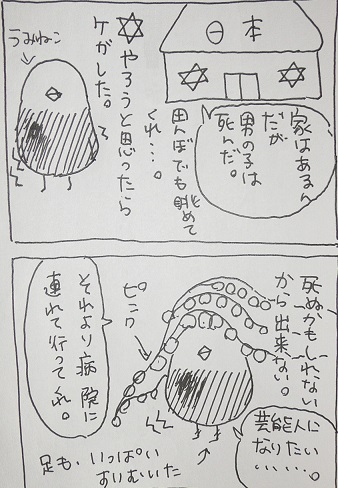 日本
家はあるん
だが
男の子は
死んだ。
田んぼでも眺めて
くれ…。
☆やろうと思ったら
ケガした。
うみねこ
死ぬかもしれない
から出来ない。
ピンク
それより病院に
連れて行ってくれ。
芸能人に
なりたい
……。
足も、いっぱい
すりむいた